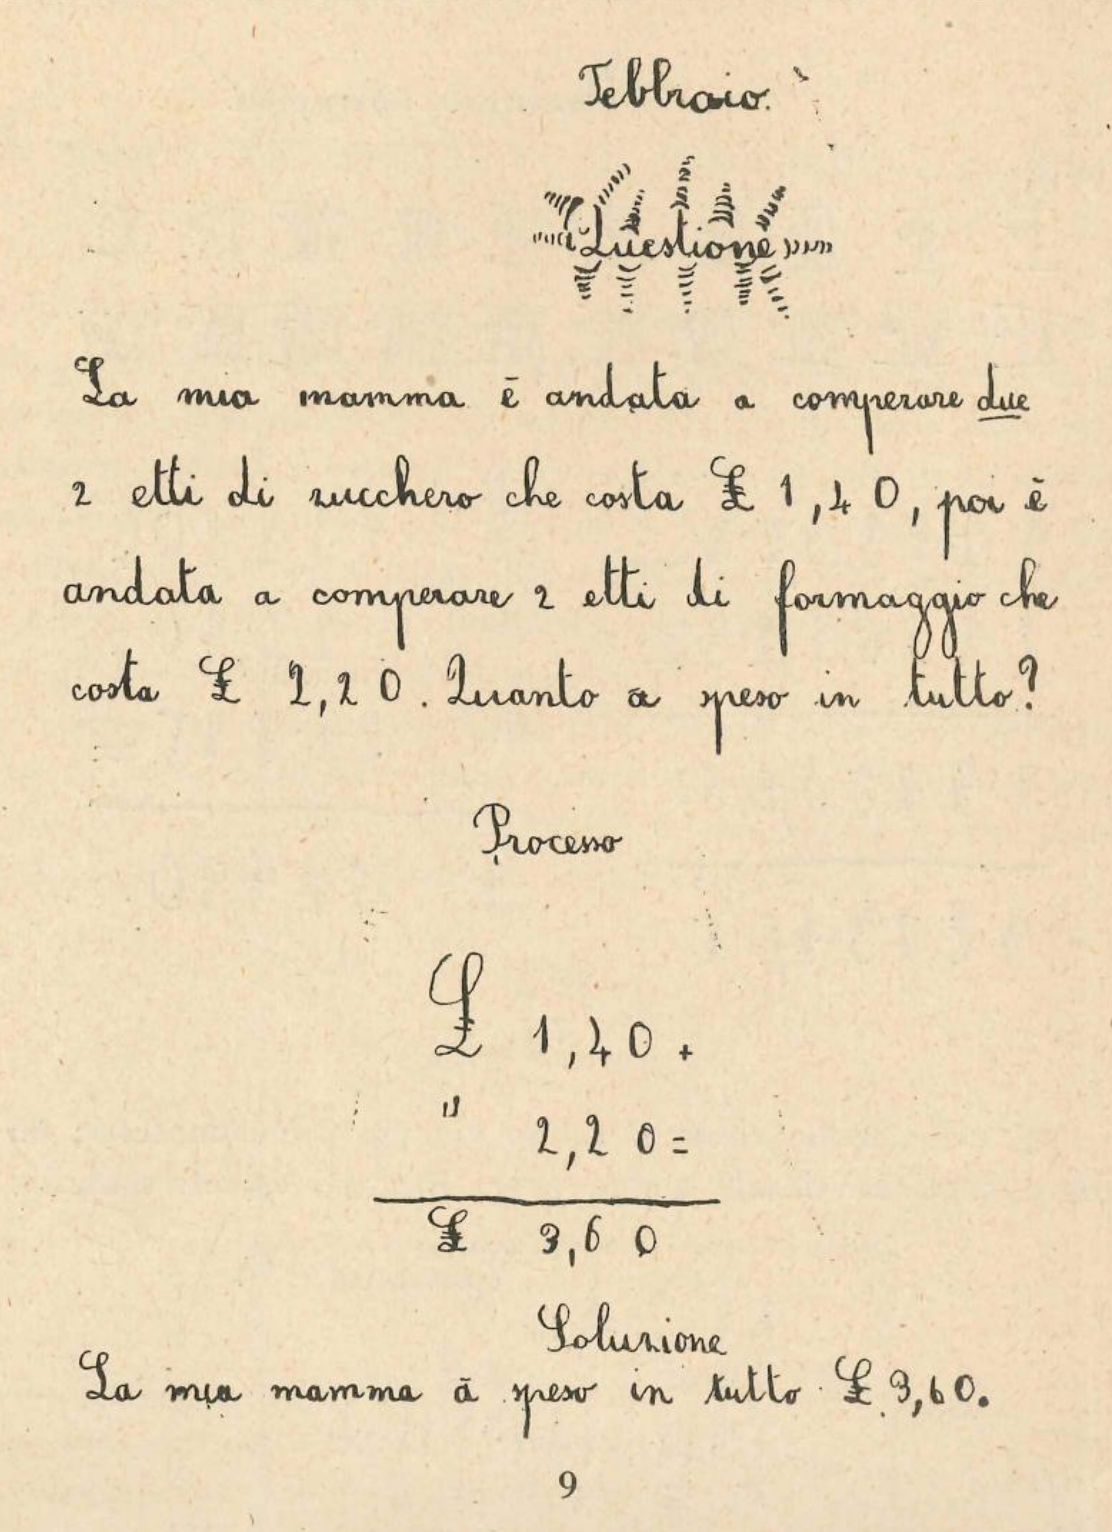 Febbraio.
Questione
La mia mamma ē andata a comperare due
2 etti di zucchero che costa £ 1,40, poi ē
andata a comperare 2 etti di formaggio che
costa £ 2,20. Quanto ā speso in tutto?
Processo
£ 1,40 +
" 2,20 =
£ 3,60
Soluzione
La mia mamma ā speso in tutto £ 3,60.
9